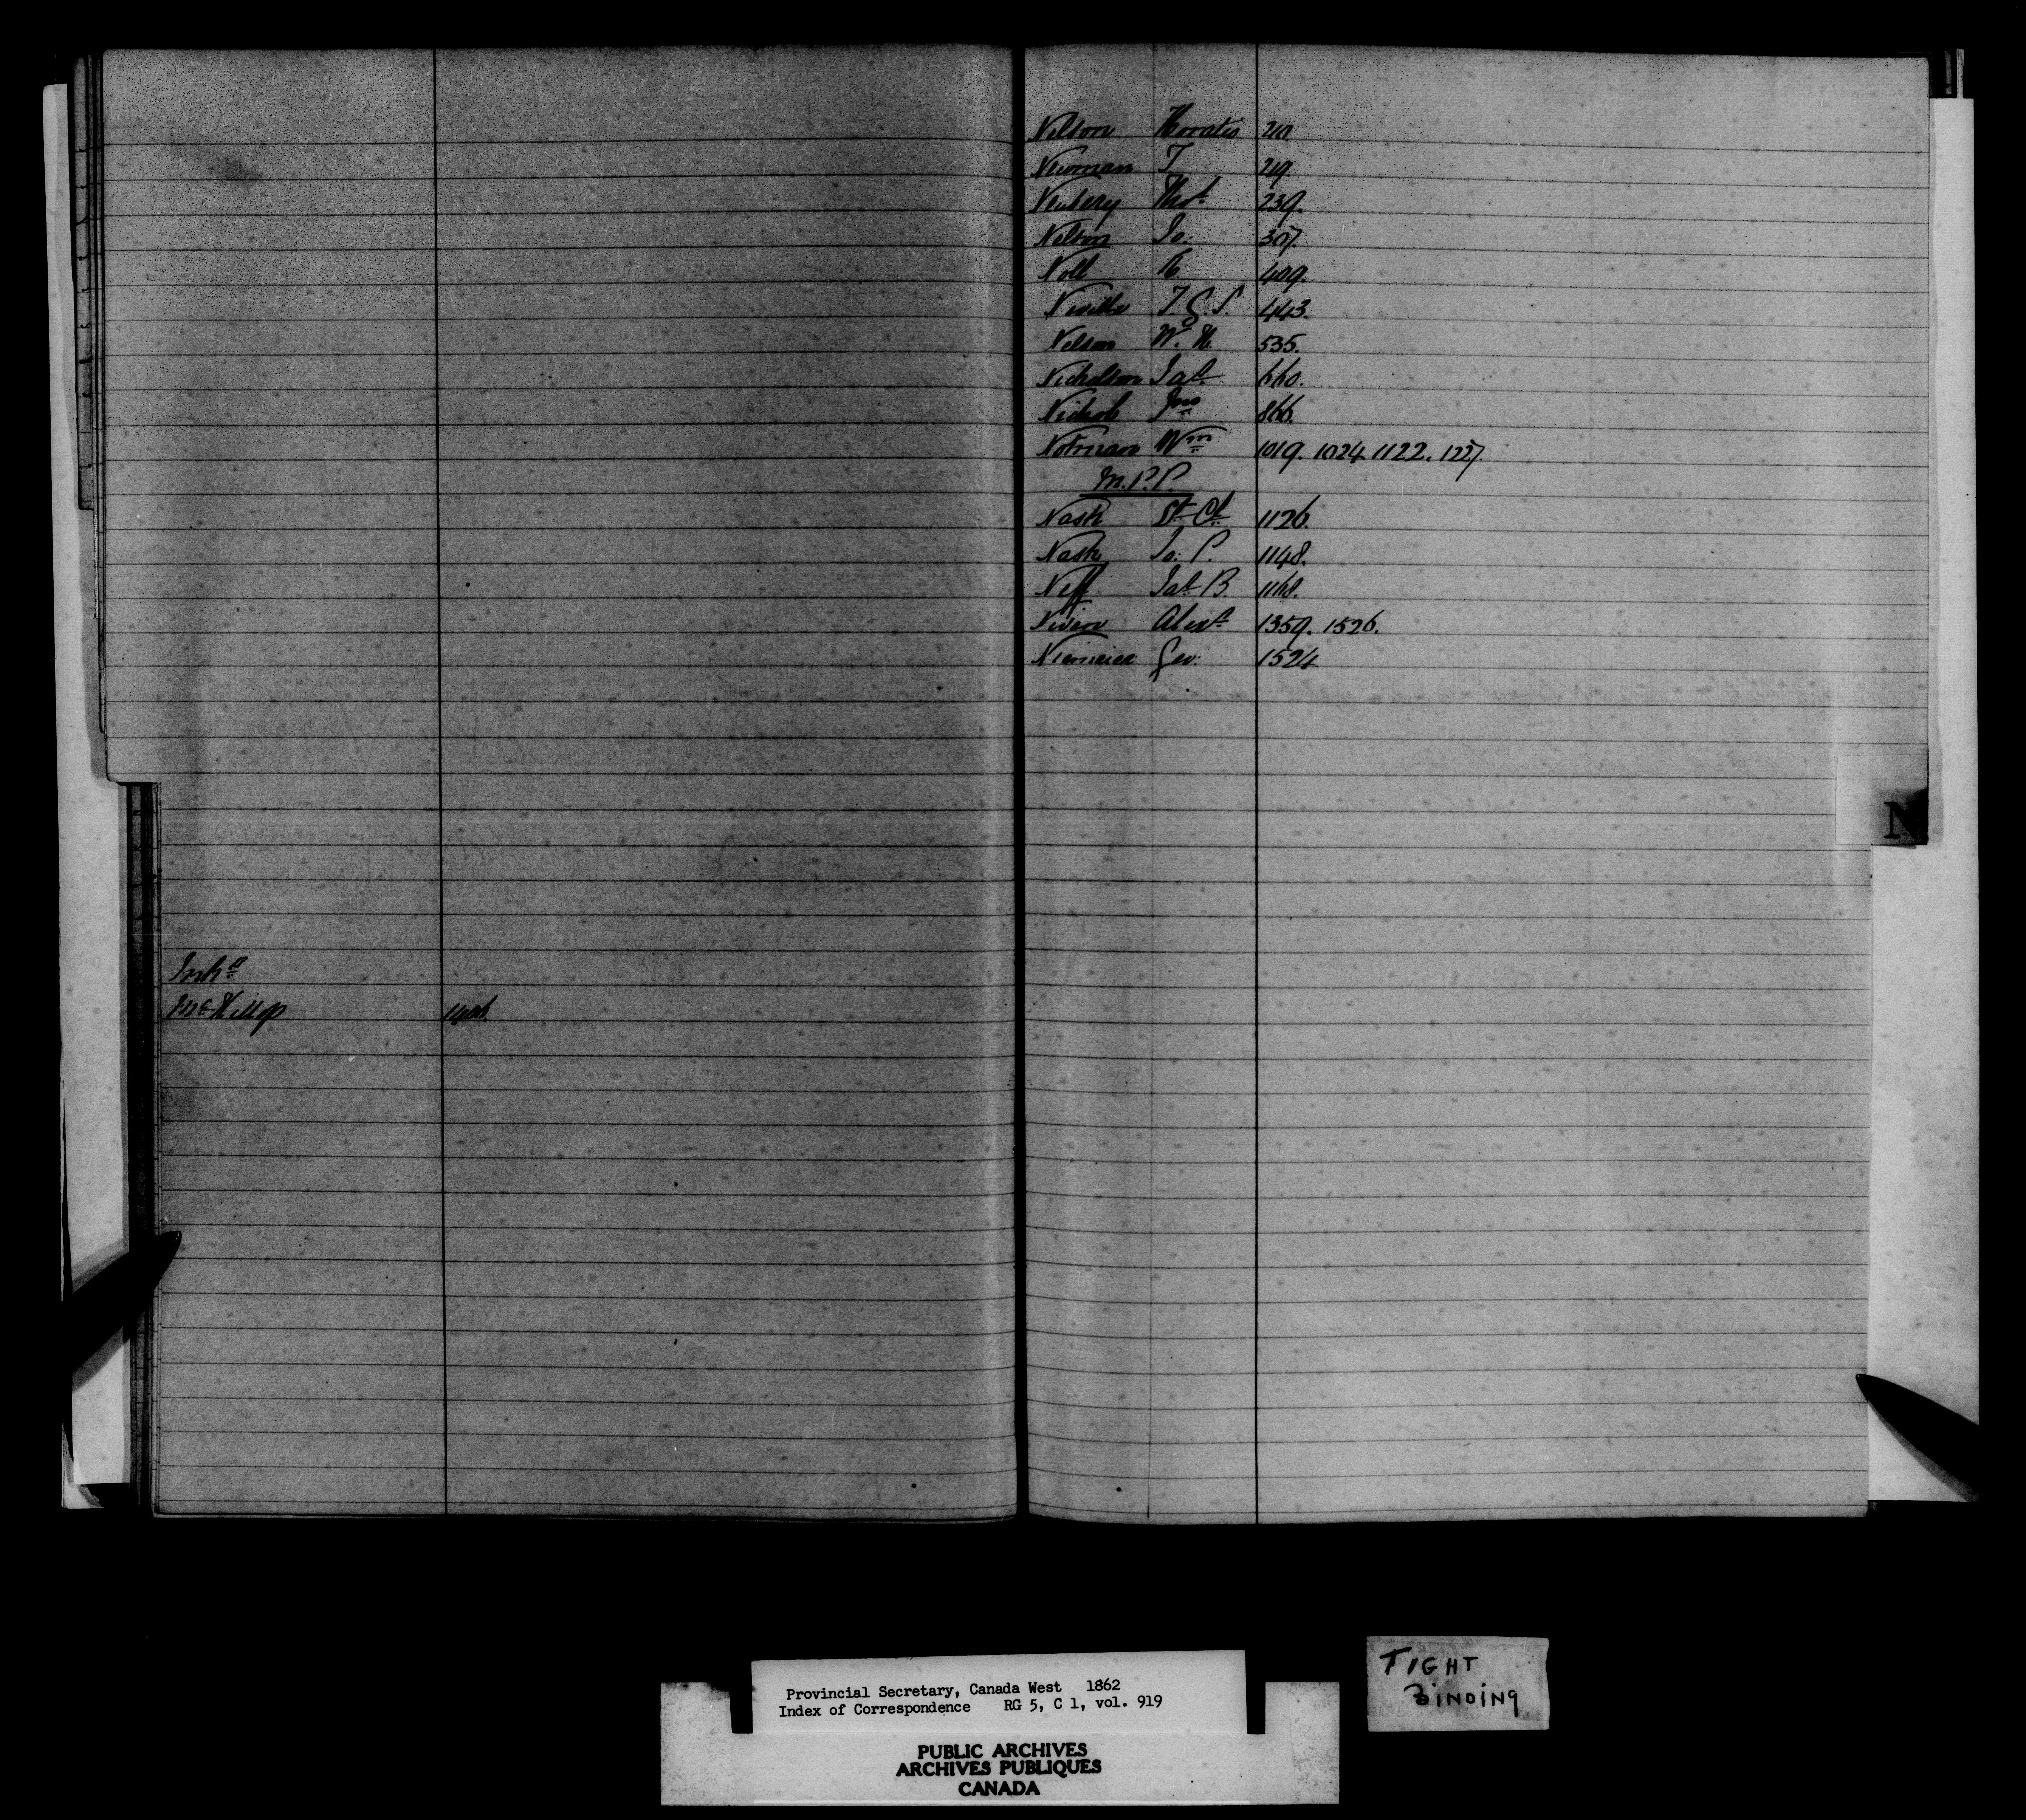 Inhts
McKillop
Nelson Horatio 210.
Newman T 219.
Newbery Thos 239.
Nelson Jo: 307.
Noll R 409.
Neville T. C. S. 443.
Nelson W. H. 535.
Nicholson Jas 660.
Nichols Jno 866.
Notman Wm 1019. 1024 1122. 1227.
M.P.P.
Nash St Ch 1126.
Nash Jo: P. 1148.
Neff Jas B 1168.
Niven Alexr 1359. 1526.
Niemeier Geo: 1524
N
Provincial Secretary, Canada West 1862
Index of Correspondence RG 5, C 1, vol. 919
PUBLIC ARCHIVES
ARCHIVES PUBLIQUES
CANADA
TIGHT
BINDING